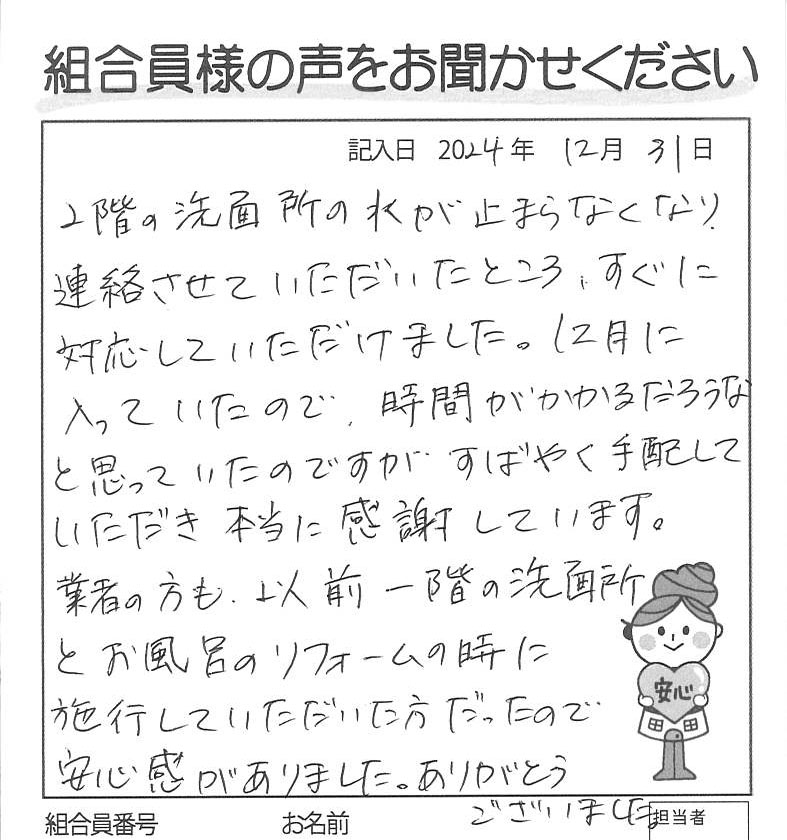 組合員様の声をお聞かせください
記入日 2024年 12月 31日
2階の洗面所の水が止まらなくなり、
連絡させていただいたところ、すぐに
対応していただけました。12月に
入っていたので、時間がかかるだろうな
と思っていたのですが、すばやく手配して
いただき本当に感謝しています。
業者の方も、以前一階の洗面所
とお風呂のリフォームの時に
施行していただいた方だったので
安心感がありました。ありがとう
ございました
安心
組合員番号 お名前 担当者